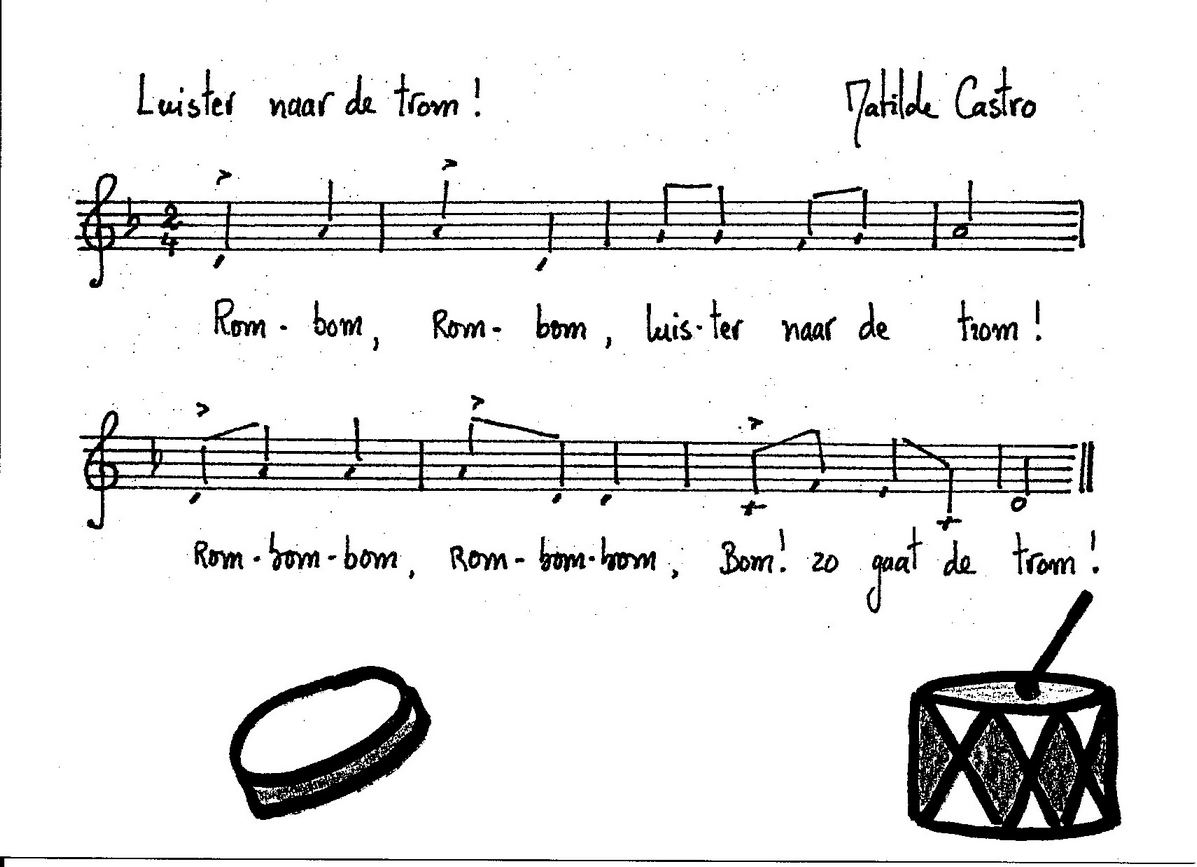 Luister naar de trom! Matilde Castro
2
4
Rom - bom, Rom - bom, luis-ter naar de trom!
Rom - bom - bom, Rom - bom - bom, Bom! zo gaat de trom!